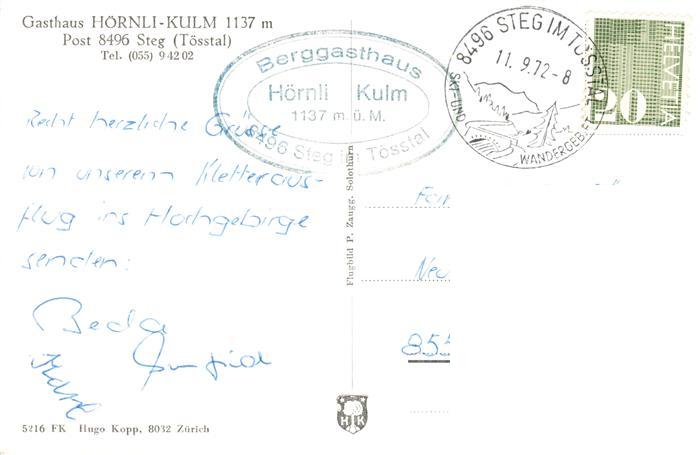 Gasthaus HÖRNLI-KULM 1137 m
Post 8496 Steg (Tösstal)
Tel. (055) 9 42 02
Berggasthaus
Hörnli Kulm
1137 m. ü. M.
8496 Steg im Tösstal
8496 STEG IM TÖSSTAL
11. 9.72-8
SKI- UND
WANDERGEBIET
HELVETIA
20
Recht herzliche Grüsse
von unserem Kletteraus-
flug ins Hochgebirge
senden:
Beda
Flugbild P. Zaugg, Solothurn
Fam
Neu
855
H K
5216 FK Hugo Kopp, 8032 Zürich